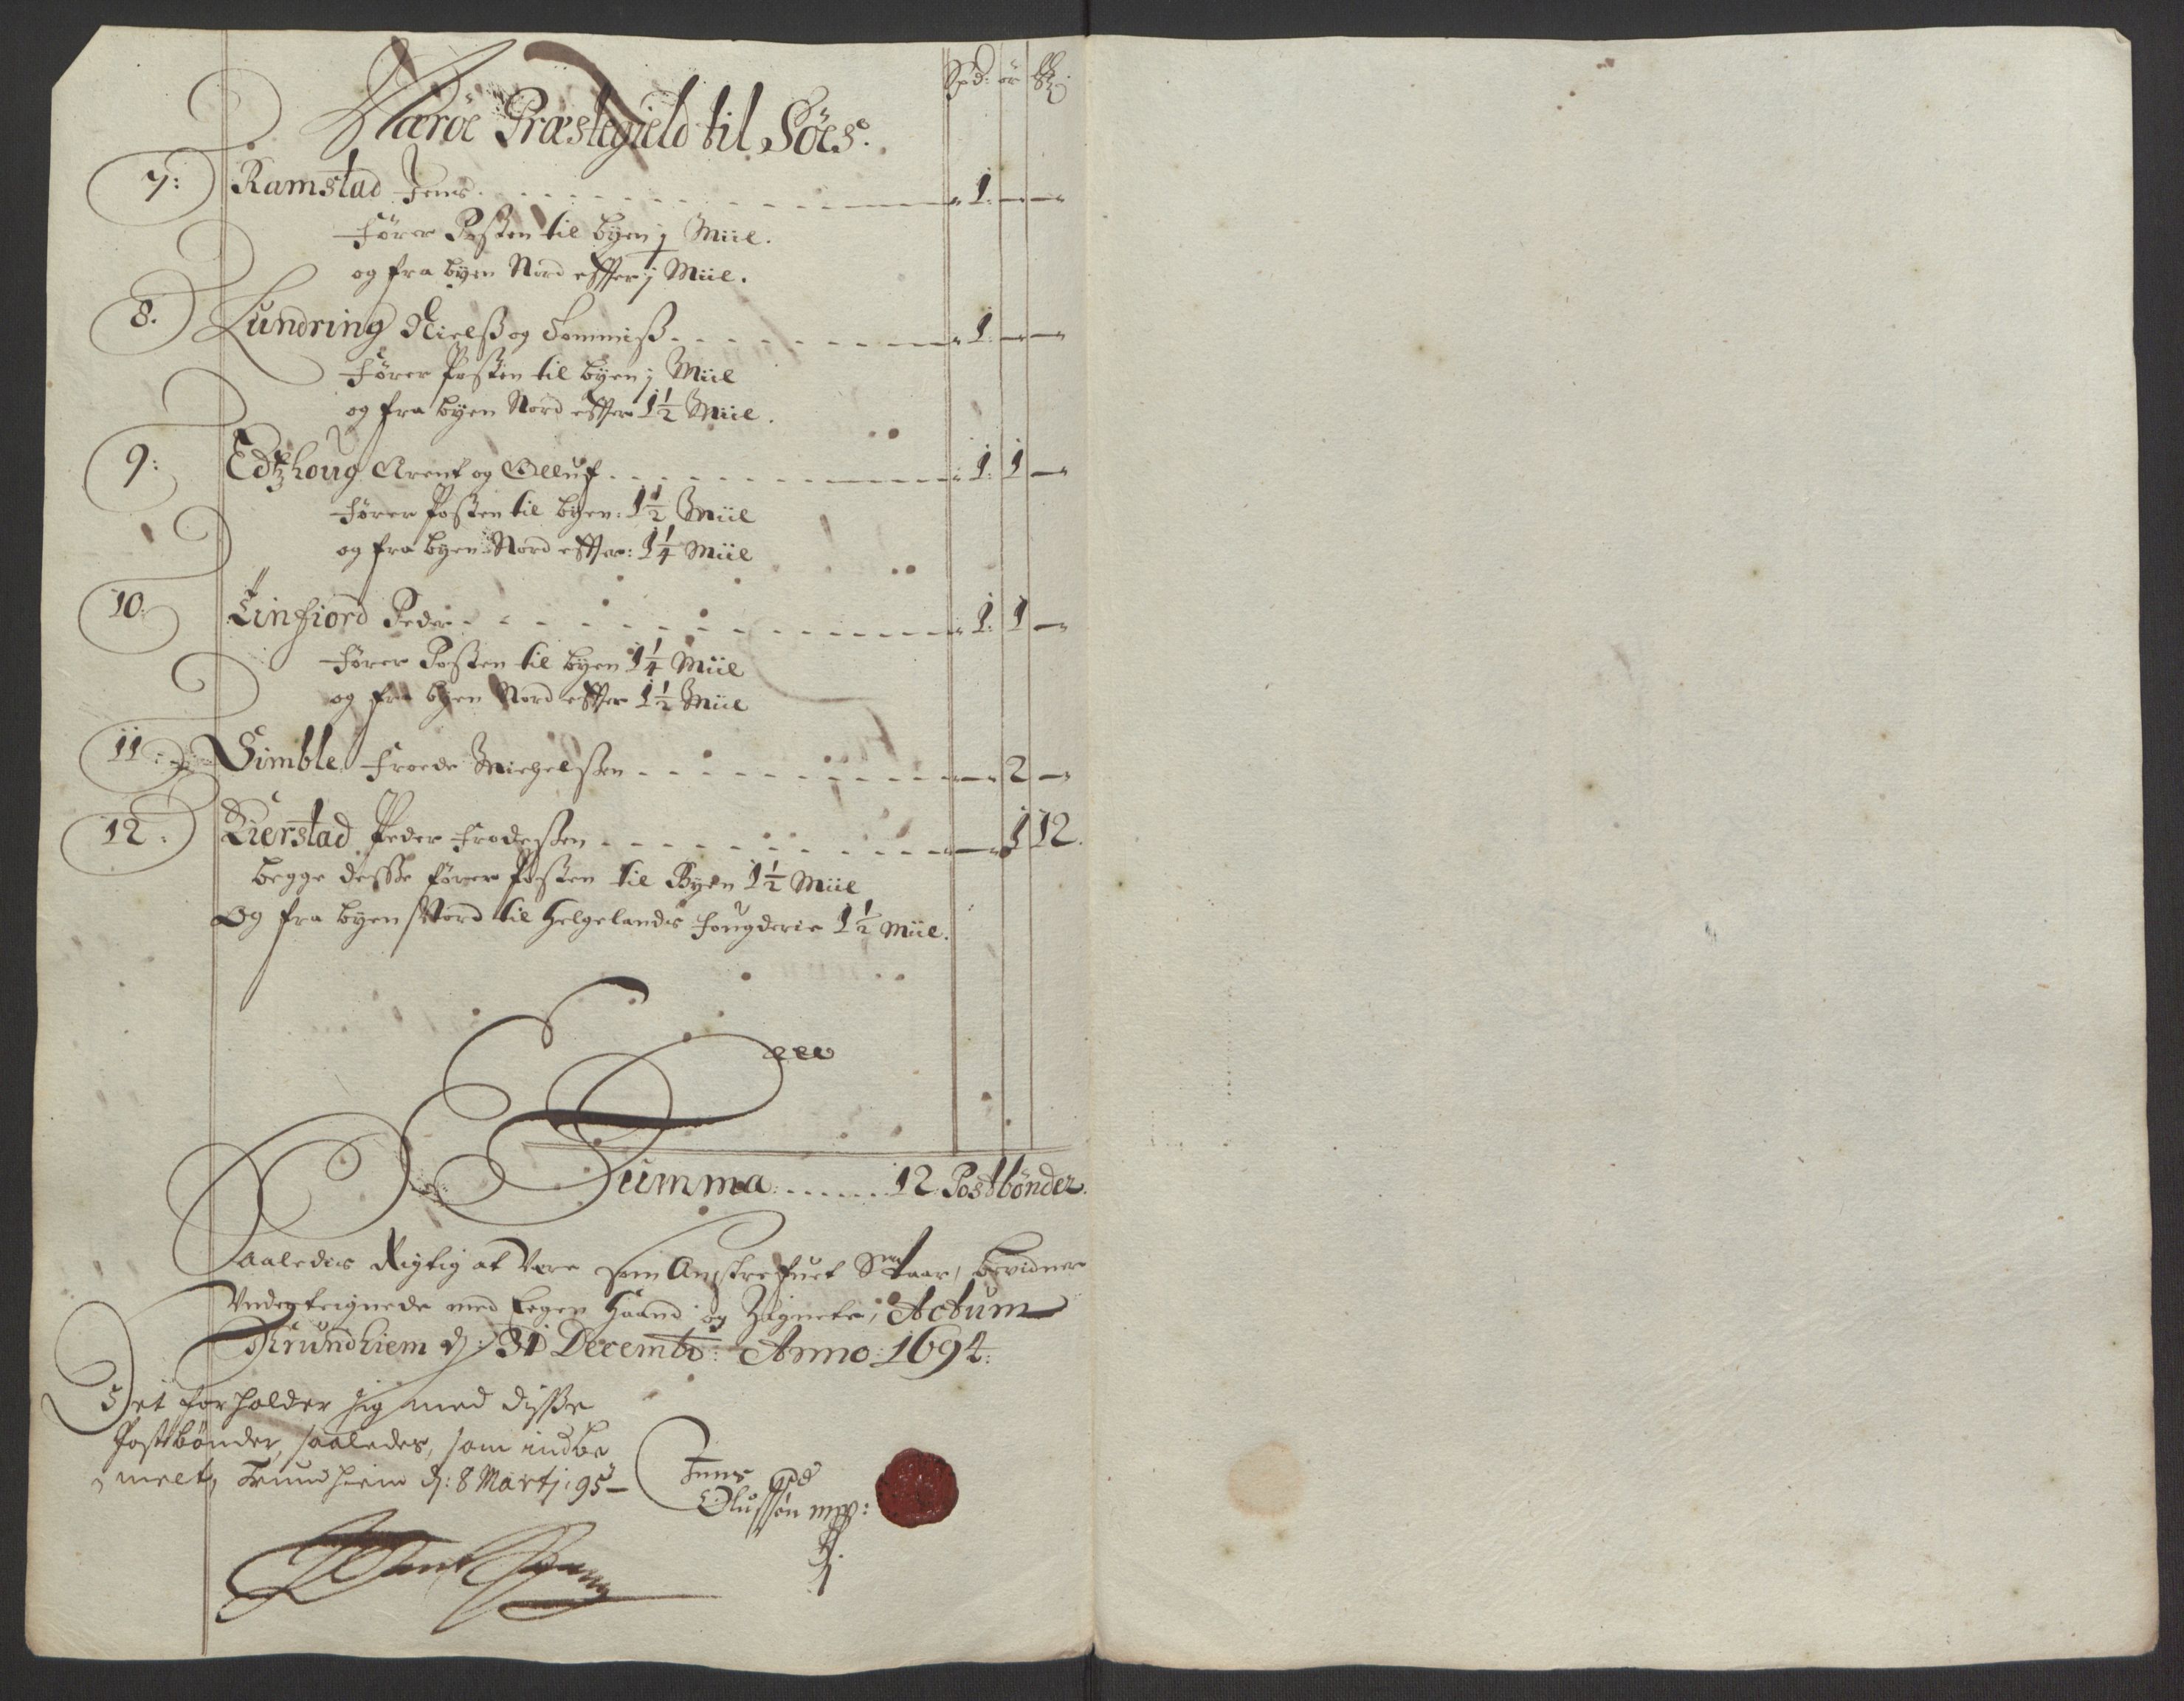 Spd: ör ß
Nærøe Præstegield til Søes.
7: Ramstad Jens 1: — —
fører Posten til byen j Miil.
og fra byen Nord effter j Miil.
8. Lundring Nielß og Tommiß 1 — —
fører Posten til byen j Miil
og fra byen Nord effter 1½ Miil.
9: Edtzhoug Arent og Olluf 1: 1 —
fører Posten til byen: 1½ Miil
og fra byen Nord effter: 1¼ Miil
10: Einfiord Peder 1: 1 —
fører Posten til byen 1¼ Miil
og fra byen Nord effter 1½ Miil
11: Simble Froede Michelsen — 2 —
12: Kierstad Peder Frodessen — 1 12.
begge desse fører Posten til Byen 1½ Miil
Og fra byen Nord til Helgelands fougderie 1½ Miil.
Summa 12 Postbønder.
Saaledis Rigtig at Være som Anstrefuet Staar, bevidner
Underteignede med Eegen Haand og Zignete, Actum
Trundhiem d: 31 Decembr: Anno: 1694:
Det forholder sig med disse
Postbønder, saaledes, som indbe
melt, Trundhiem d: 8 Martj: 95
Jens
Olussøn mpp: